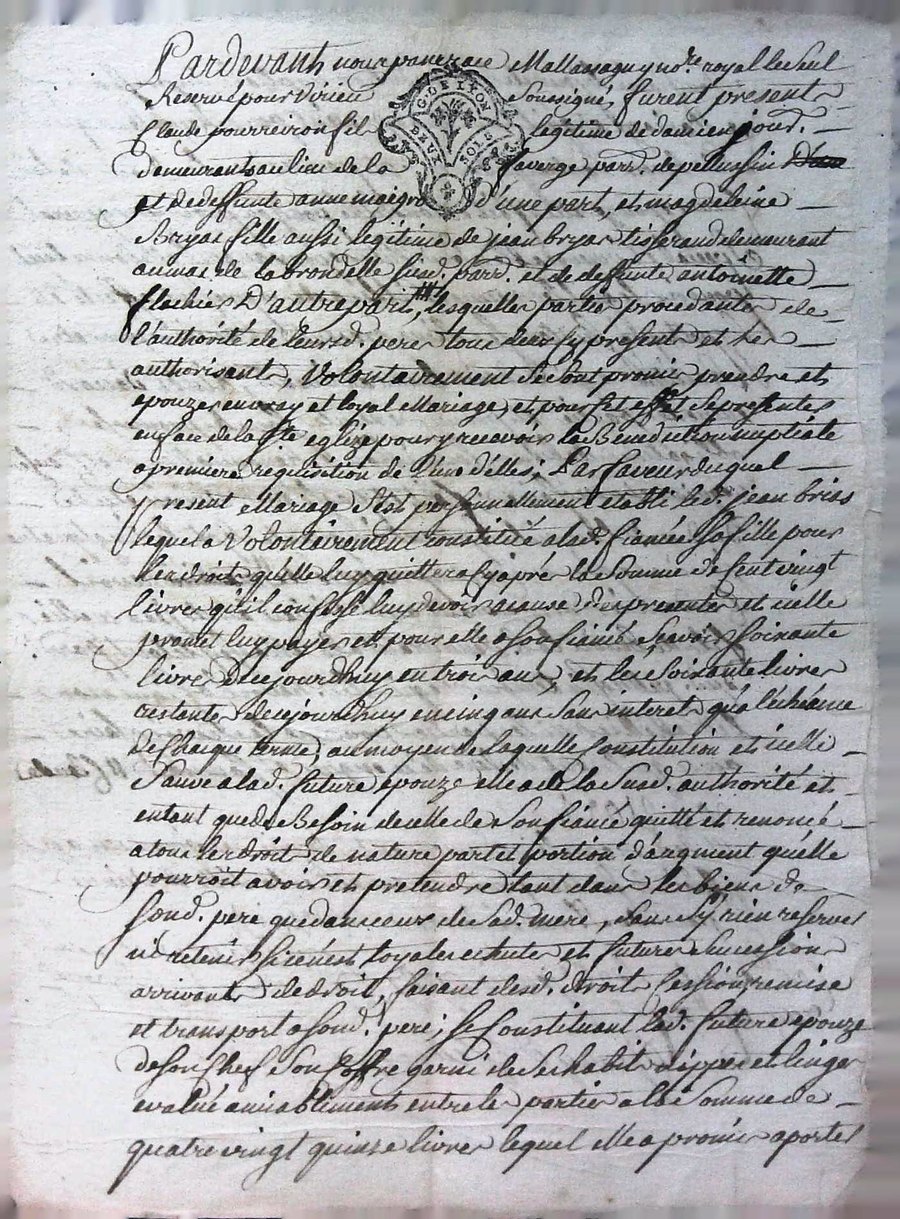 Pardevant nous pancrace Mallassagny no.re royal le seul
Reservé pour Virieu soussigné, furent present
G. DE LYON
DEUX SOLS
Claude pourreiron fil legitime de damien jour.
demeurant au lieu de la faverge parr. de pellussin
et de deffunte anne maigre d'une part, et magdeleine
Bryas fille aussi legitime de jean bryas tisserand demeurant
au mas de la brondelle susd. parr. et de deffunte antoinette
flachier D'autre part, lesquelles partie procedante de
l'authorité de leursd. peres tous deux cy present et les
authorisant, Volontairement se sont promis prendre et
epouzer en vray et loyal Mariage, et pour cet effet se presenter
en face de la ste eglize pour y recevoir la Benediction nuptiale
a premiere requisition de l'une d'elles; En faveur duquel
present Mariage s'est personnellement etabli led. jean brias
lequel a Volontairement constitué a lad. fiancée sa fille pour
les droits qu'elle luy quittera cy aprés la somme de cent vingt
livres qu'il confesse luy devoir a cause des presentes et icelle
promet luy payer et pour elle a son fiancé, sçavoir soixante
livres de ce jourdhuy en trois ans, et les soixante livres
restantes de ce jourdhuy en cinq ans sans interet qu'a l'écheance
de chaque terme, au moyen de laquelle Constitution et icelle
sauve a lad. future epouze elle a de la susd. authorité et
entant que de Besoin de celle de son fiancé quitté et renoncé
a tous les droits de nature part et portion d'augment qu'elle
pourroit avoir et pretendre tant dans les biens de
sond. pere que dans ceux de sad. mere, sans s'y rien reserver
ni retenir si ce n'est loyales echutes et futures succession
arrivants de droit, faisant desd. droits cession remise
et transport a sond. pere; se Constituant lad. future epouze
de son chef son coffre garni de ses habits nippes et linges
evalué amiablement entre les parties a la somme de
quatre vingt quinze livres lequel elle a promis aporter